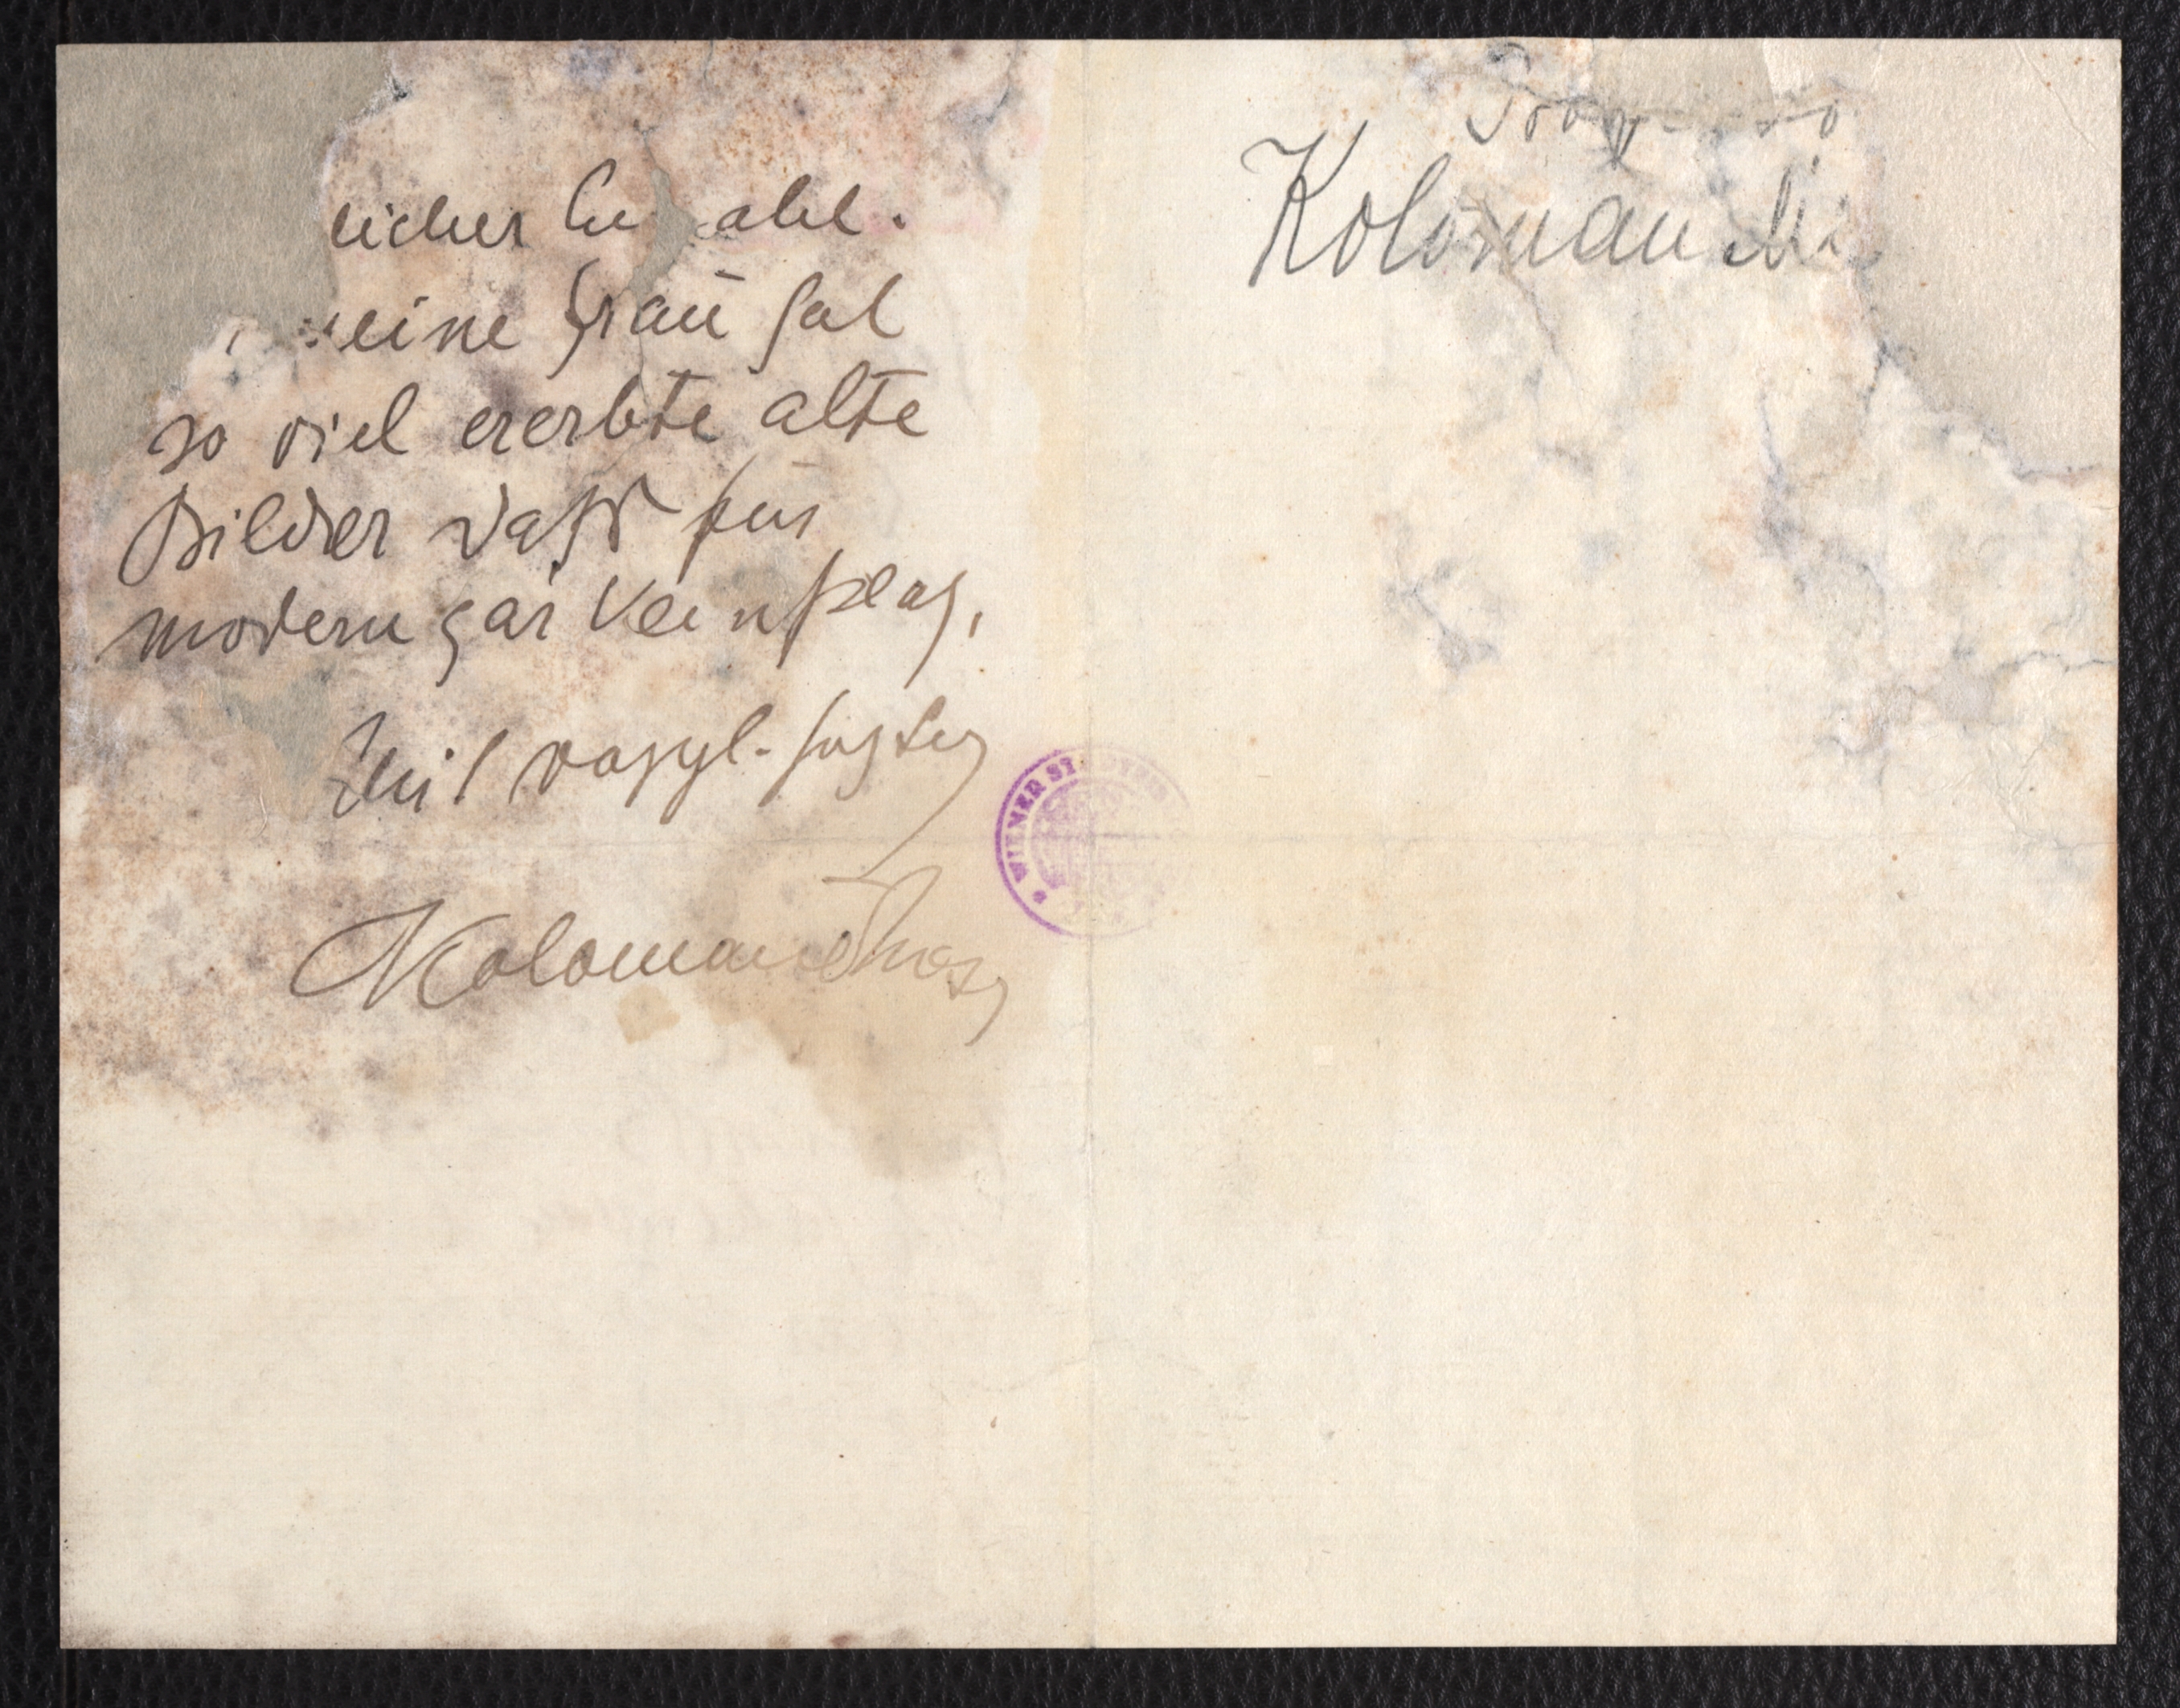 licher
eine Frau hat
so viel ererbte alte
Bilder dass für
modern gar kein Platz,
Mit vorzgl.
Koloman Moser
Koloman
WIENER ST